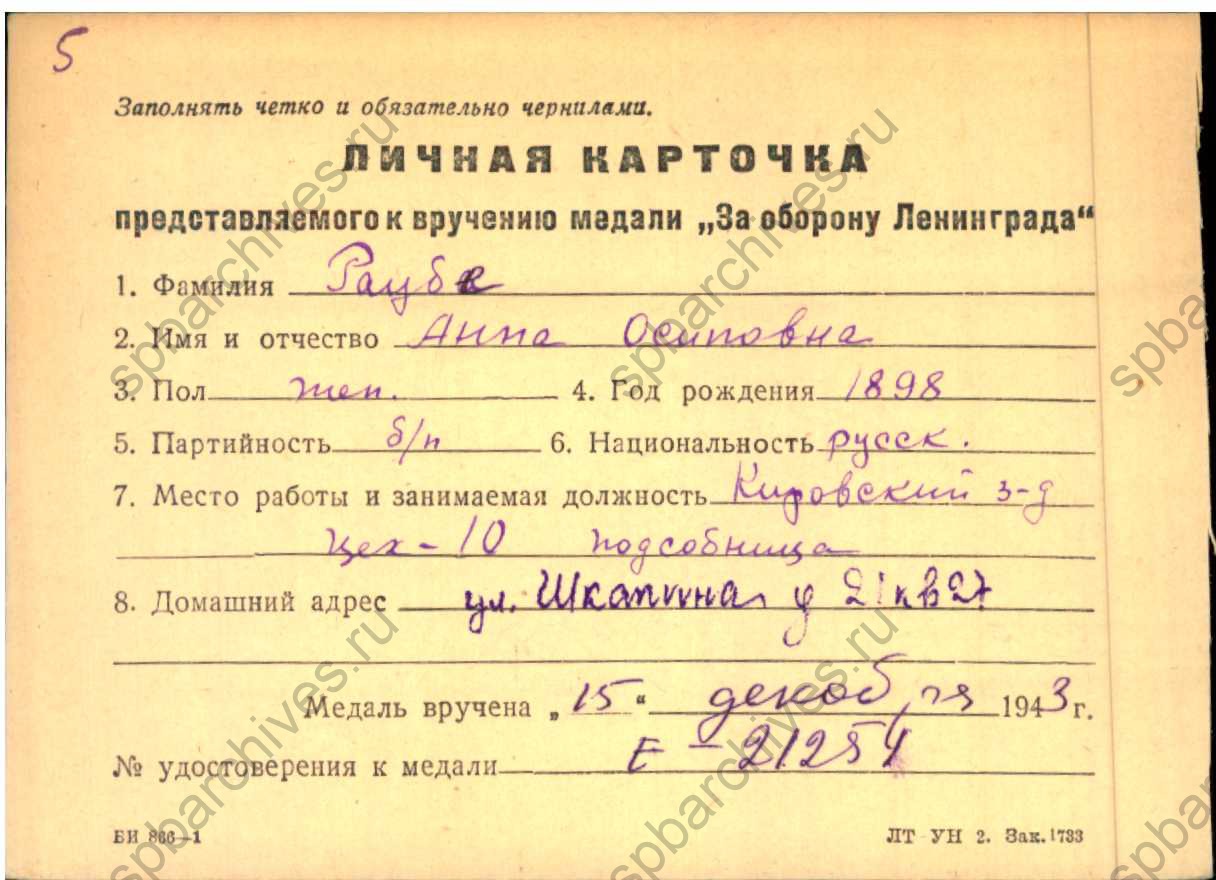 5
Заполнять четко и обязательно чернилами.
ЛИЧНАЯ КАРТОЧКА
представляемого к вручению медали „За оборону Ленинграда“
1. ФамилияРаубе
2. Имя и отчество Анна Осиповна
3. Пол жен. 4. Год рождения 1898
5. Партийность б/п 6. Национальность русск.
7. Место работы и занимаемая должность Кировский з-д
цех-10 подсобница
8. Домашний адрес ул. Шкапина д 21 кв 27
Медаль вручена „15“ декабря 1943 г.
№ удостоверения к медали Е-21254
БИ 866—1 ЛТ УН 2. Зак. 1733
spbarchives.ru